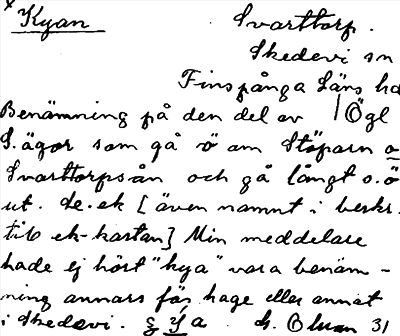 x Kyan Svarttorp.
Skedevi sn
Finspånga läns hd
Benämning på den del av Ögl
S. ägor som gå ö om Stöparn o
Svarttorpsån och gå långt o. ö
ut. de. ek [även namnt i beskr.
till ek-kartan] Min meddelare
hade ej hört "kya" vara benäm-
ning annars för hage eller annat
i Skedevi. G. Ohman 31